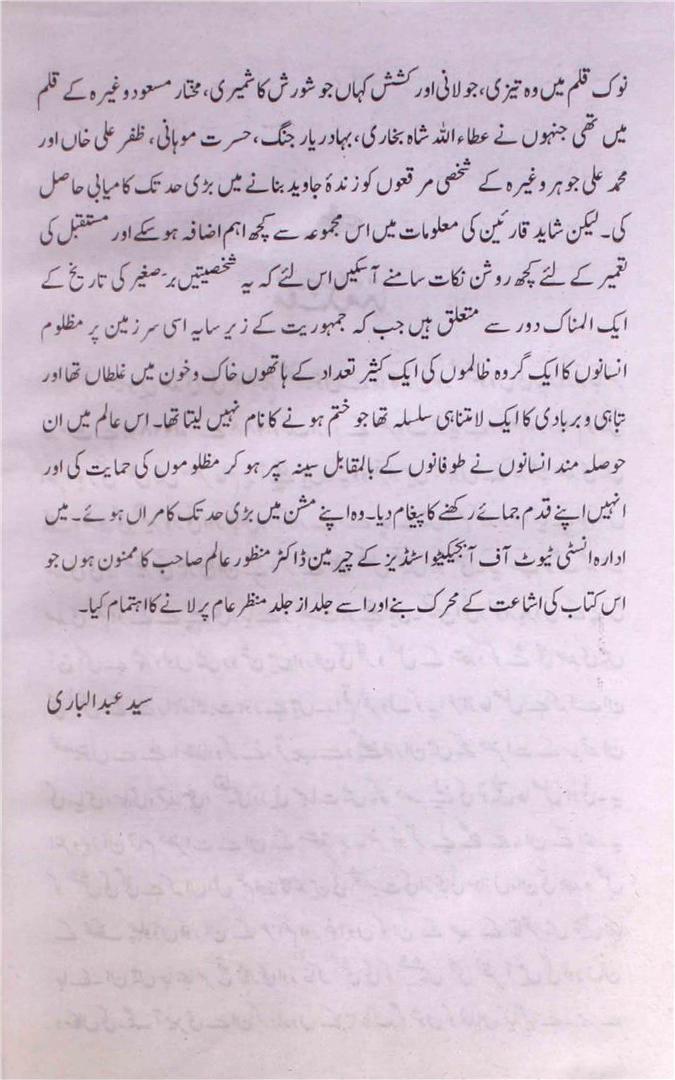 نوک قلم میں وہ تیزی، جولانی اور کشش کہاں جو شورش کاشمیری، مختار مسعود وغیرہ کے قلم
میں تھی جنہوں نے عطاء اللہ شاہ بخاری، بہادر یار جنگ، حسرت موہانی، ظفر علی خاں اور
محمد علی جوہر وغیرہ کے شخصی مرقعوں کو زندۂ جاوید بنانے میں بڑی حد تک کامیابی حاصل
کی۔ لیکن شاید قارئین کی معلومات میں اس مجموعہ سے کچھ اہم اضافہ ہو سکے اور مستقبل کی
تعمیر کے لئے کچھ روشن نکات سامنے آ سکیں اس لئے کہ یہ شخصیتیں برصغیر کی تاریخ کے
ایک المناک دور سے متعلق ہیں جب کہ جمہوریت کے زیر سایہ اسی سرزمین پر مظلوم
انسانوں کا ایک گروہ ظالموں کی ایک کثیر تعداد کے ہاتھوں خاک و خون میں غلطاں تھا اور
تباہی و بربادی کا ایک لامتناہی سلسلہ تھا جو ختم ہونے کا نام نہیں لیتا تھا۔ اس عالم میں ان
حوصلہ مند انسانوں نے طوفانوں کے بالمقابل سینہ سپر ہو کر مظلوموں کی حمایت کی اور
انہیں اپنے قدم جمائے رکھنے کا پیغام دیا۔ وہ اپنے مشن میں بڑی حد تک کامراں ہوئے۔ میں
ادارہ انسٹی ٹیوٹ آف آبجیکٹیو اسٹڈیز کے چیرمین ڈاکٹر منظور عالم صاحب کا ممنون ہوں جو
اس کتاب کی اشاعت کے محرک بنے اور اسے جلد از جلد منظر عام پر لانے کا اہتمام کیا۔
سید عبد الباری